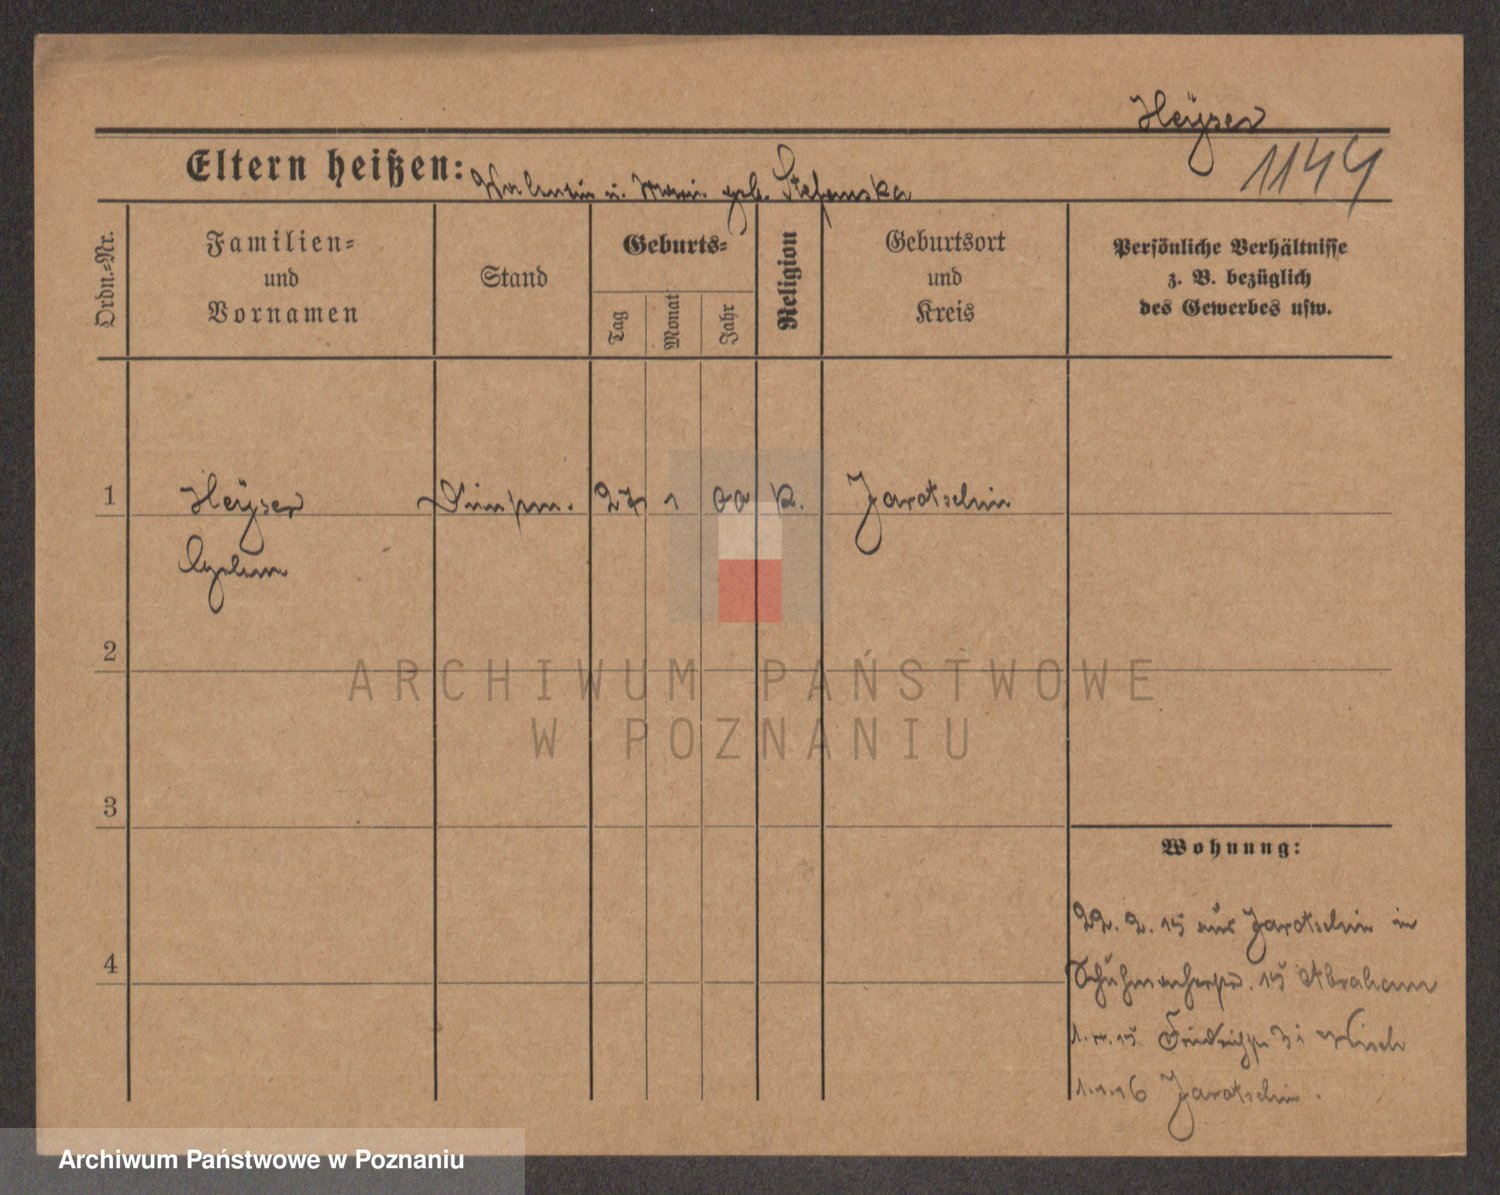 Heÿser
1144
Eltern heißen: Valentin u. Marie geb. Stefanska
Ordn.-Nr.
Familien-
und
Vornamen
Stand
Geburts-
Tag
Monat
Jahr
Religion
Geburtsort
und
Kreis
Persönliche Verhältnisse
z. B. bezüglich
des Gewerbes usw.
1 Heÿser 27 1 00 K. Jarotschin
2
ARCHIWUM PAŃSTWOWE
W POZNANIU
3
Wohnung:
22. 2. 15 aus Jarotschin in
4
Schuhmacherstr. 15 Abraham
1. 15
1.1.16 Jarotschin.
Archiwum Państwowe w Poznaniu